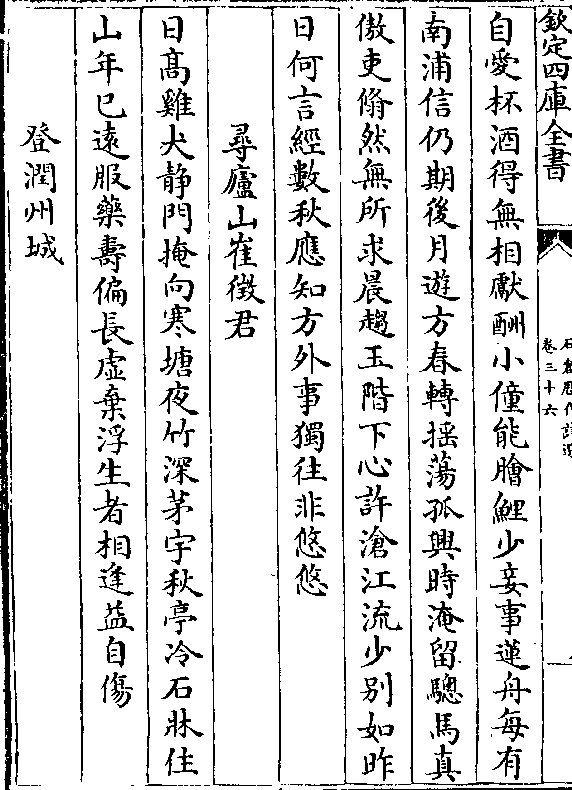 欽定四庫全書
石倉歷代詩選
卷三十六
自愛杯酒得無相獻酬小僮能膾鯉少妾事蓮舟每有
南浦信仍期後月遊方春轉揺蕩孤興時淹留驄馬真
傲吏翛然無所求晨趨玉階下心許滄江流少别如昨
日何言經數秋應知方外事獨往非悠悠
尋廬山崔徴君
日髙雞犬静門掩向寒塘夜竹深茅宇秋亭冷石牀住
山年已逺服藥壽偏長虛棄浮生者相逢益自傷
登潤州城